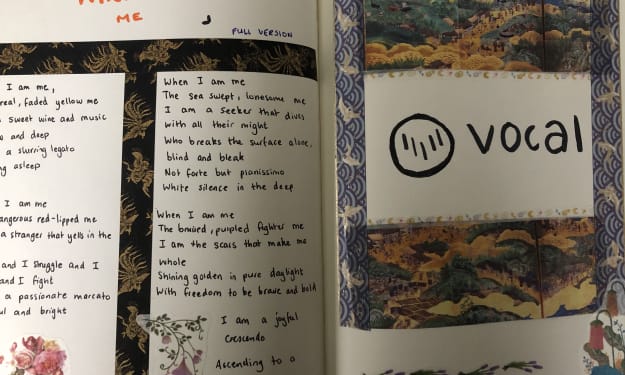 ME
FULL VERSION
I am me,
real, faded yellow me
sweet wine and music
and deep
a slurring legato
asleep
I am me
red-lipped me
a stranger that yells in the
and I struggle and I
and I fight
a passionate marcato
and bright
When I am me
The sea swept, lonesome me
I am a seeker that dives
with all their might
Who breaks the surface alone,
blind and bleak
Not forte but pianissimo
White silence in the deep
When I am me
The bruised, purpled fighter me
I am the scars that make me
whole
Shining golden in pure daylight
With freedom to be brave and bold
I am a joyful
crescendo
Ascending to a
vocal